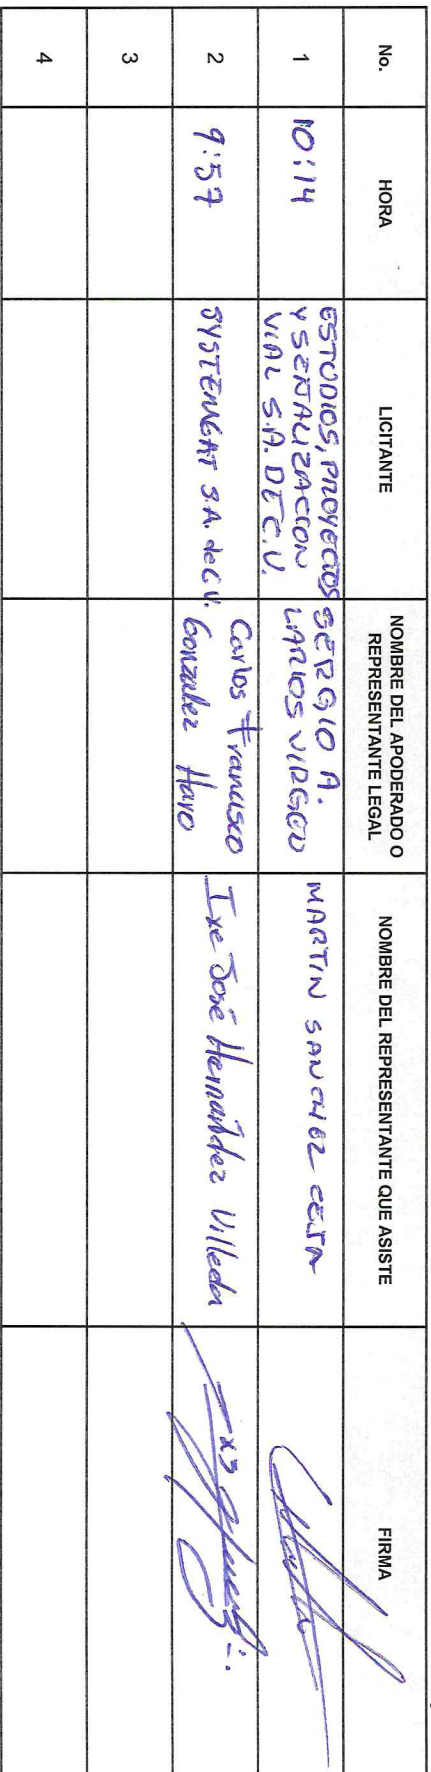 No. HORA LICITANTE NOMBRE DEL APODERADO O REPRESENTANTE LEGAL NOMBRE DEL REPRESENTANTE QUE ASISTE FIRMA
1 10:14 ESTUDIOS, PROYECTOS Y SEÑALIZACION VIAL S.A. DE C.V. SERGIO A. LARIOS VIRGEN MARTIN SANCHEZ
2 9:57 SYSTEMGAT S.A. de C.V. Carlos Francisco Gonzalez Haro Ixe José Hernández Villeda
3
4